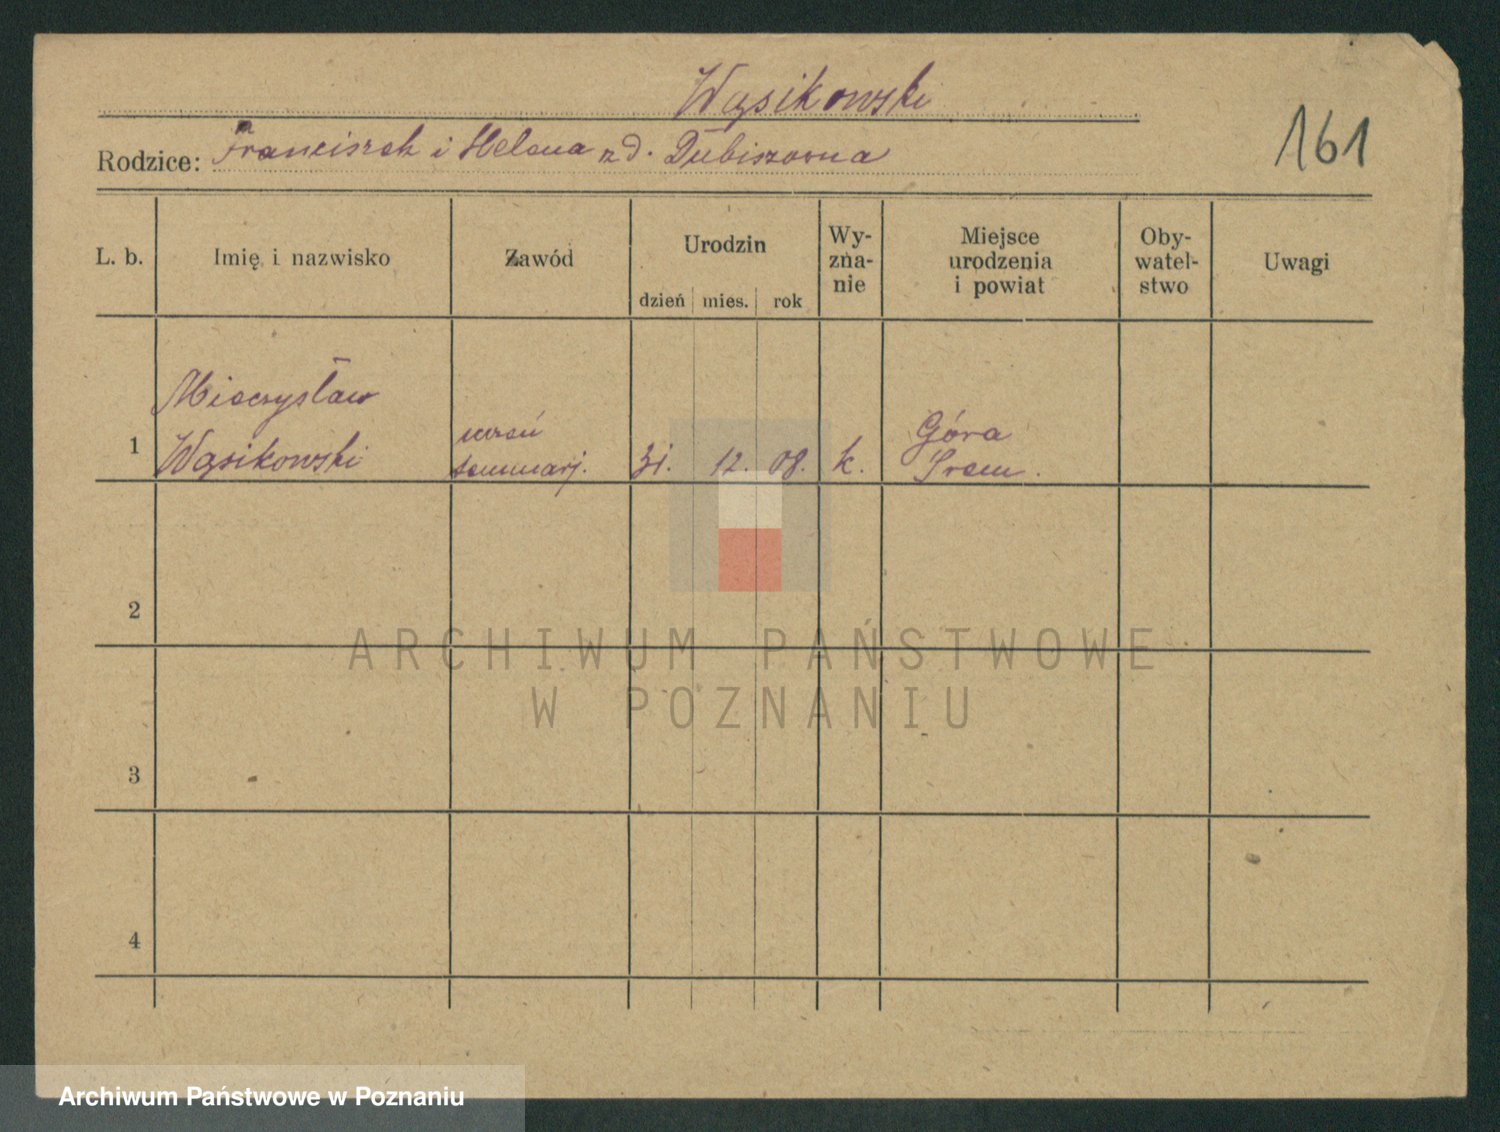 Wąsikowski
161
Rodzice: Franciszek i Helena zd. Dubiszówna
L. b. Imię i nazwisko Zawód Urodzin dzień mies. rok Wy-zna-nie Miejsce urodzenia i powiat Oby-watel-stwo Uwagi
Mieczysław
1 Wąsikowski uczeń seminarj. 31. 12. 08. k. Góra Śrem.
2
3
4
ARCHIWUM PAŃSTWOWE
W POZNANIU
Archiwum Państwowe w Poznaniu